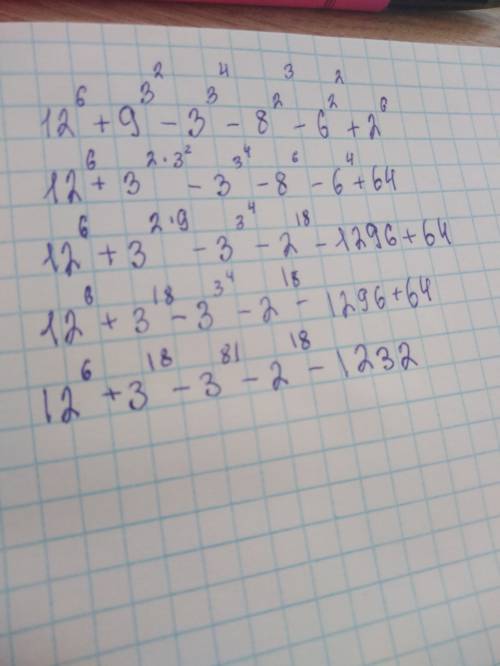 12^6 + 9^{3^2} - 3^{3^4} - 8^{2^3} - 6^{2^2} + 2^6
12^6 + 3^{2·3^2} - 3^{3^4} - 8^6 - 6^4 + 64
12^6 + 3^{2·9} - 3^{3^4} - 2^{18} - 1296 + 64
12^6 + 3^{18} - 3^{3^4} - 2^{18} - 1296 + 64
12^6 + 3^{18} - 3^{81} - 2^{18} - 1232